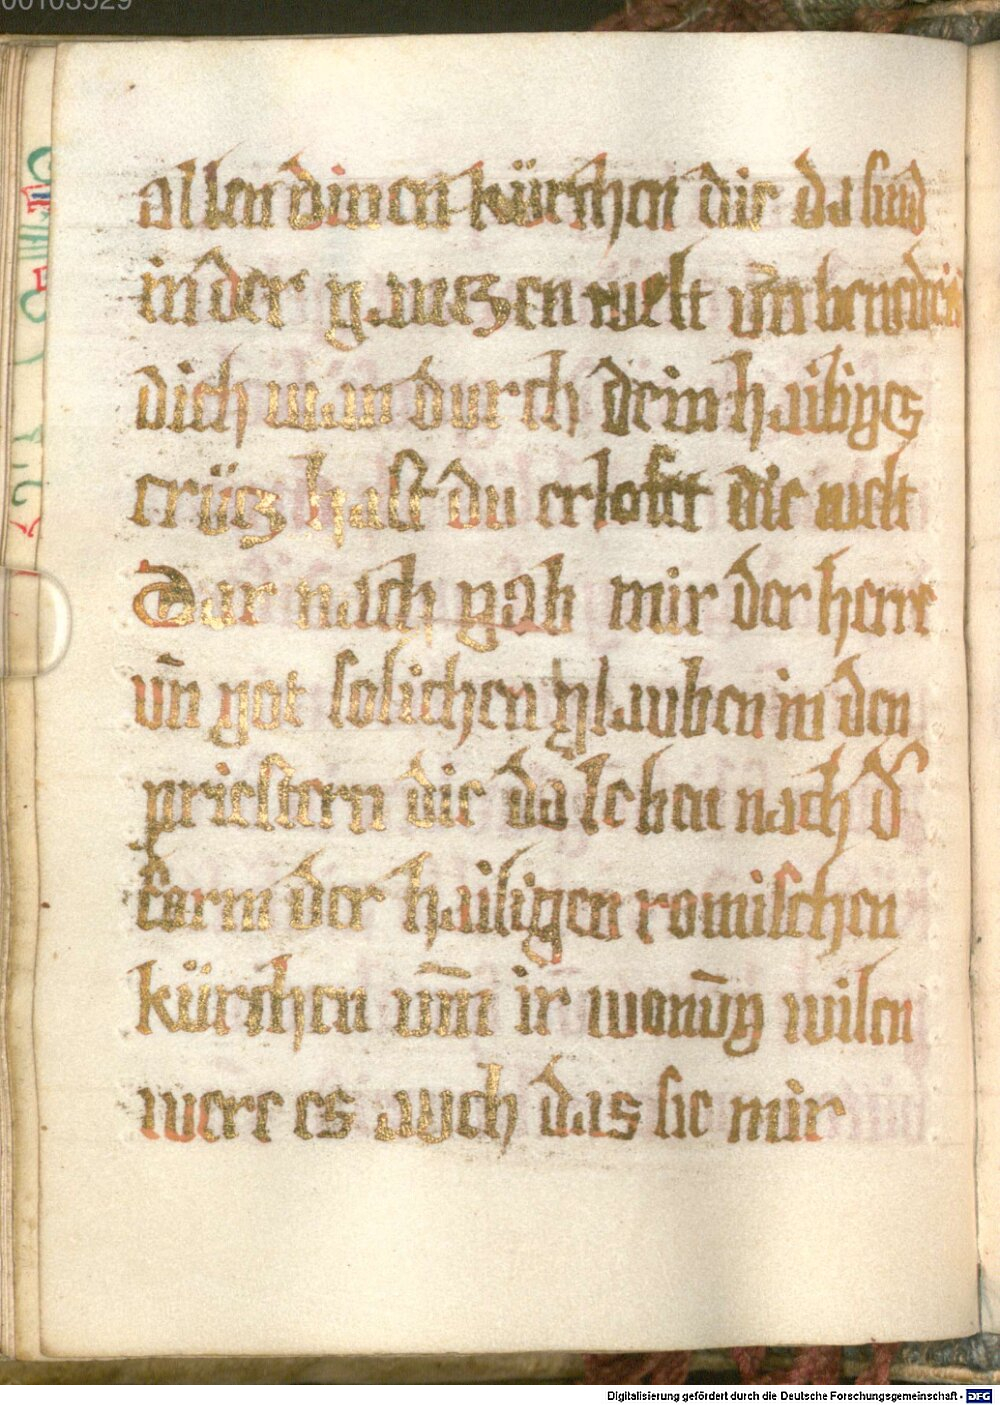 00103529
allen dinen kürchen die da sind
in der gantzen welt vñ benedien
dich wan durch dein hailiges
crütz hast du erlost die welt
Dar nach gab mir der herre
vñ got solichen glauben in den
priestern die da leben nach d'
form der hailigen romischen
kürchen vm̄ ir wonūg wilen
were es auch das sie mir
Digitalisierung gefördert durch die Deutsche Forschungsgemeinschaft - DFG